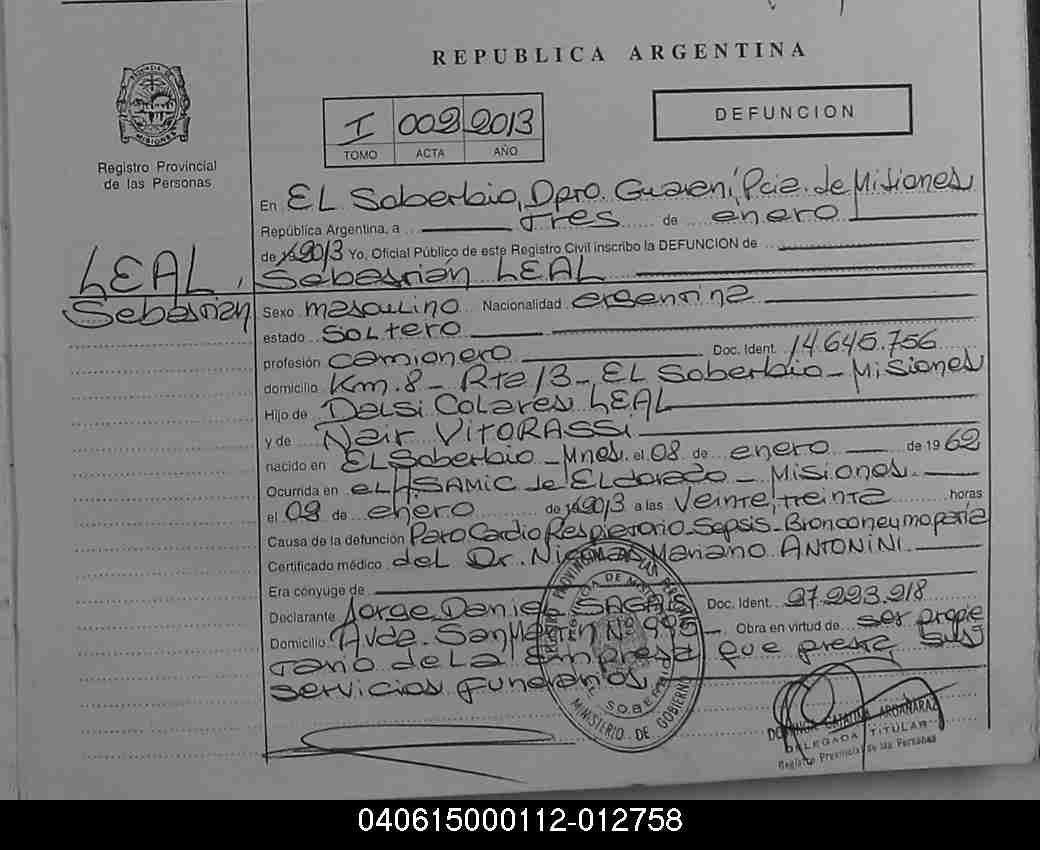 REPUBLICA ARGENTINA
PROVINCIA DE
MISIONES
Registro Provincial
de las Personas
I 002 2013
TOMO ACTA AÑO
DEFUNCION
En EL Soberbio, Dpto. Guaraní, Pcia. de Misiones
República Argentina, a tres de enero
de 2013 Yo, Oficial Público de este Registro Civil inscribo la DEFUNCION de
LEAL, Sebastián LEAL
Sebastián Sexo masculino Nacionalidad argentina
estado soltero
profesión camionero Doc. Ident. 14.645.756
domicilio Km. 8 - Rta 13 - EL Soberbio - Misiones
Hijo de Delsi Colares LEAL
y de Nair VITORASSI
nacido en EL Soberbio - Mnes. el 08 de enero de 1962
Ocurrida en el H. SAMIC de Eldorado - Misiones
el 02 de enero de 2013 a las Veinte, treinta horas
Causa de la defunción Paro Cardio Respiratorio - Sepsis - Bronconeumopatía
Certificado médico del Dr. Mariano ANTONINI
Era cónyuge de
Declarante Jorge Daniel Doc. Ident. 27.223.218
Domicilio Avda. San Martín Nº 995 - Obra en virtud de ser propie
tario de la Empresa que presta sus
servicios funerarios
MINISTERIO DE GOBIERNO
DELEGADA TITULAR
Registro Provincial de las Personas
040615000112-012758